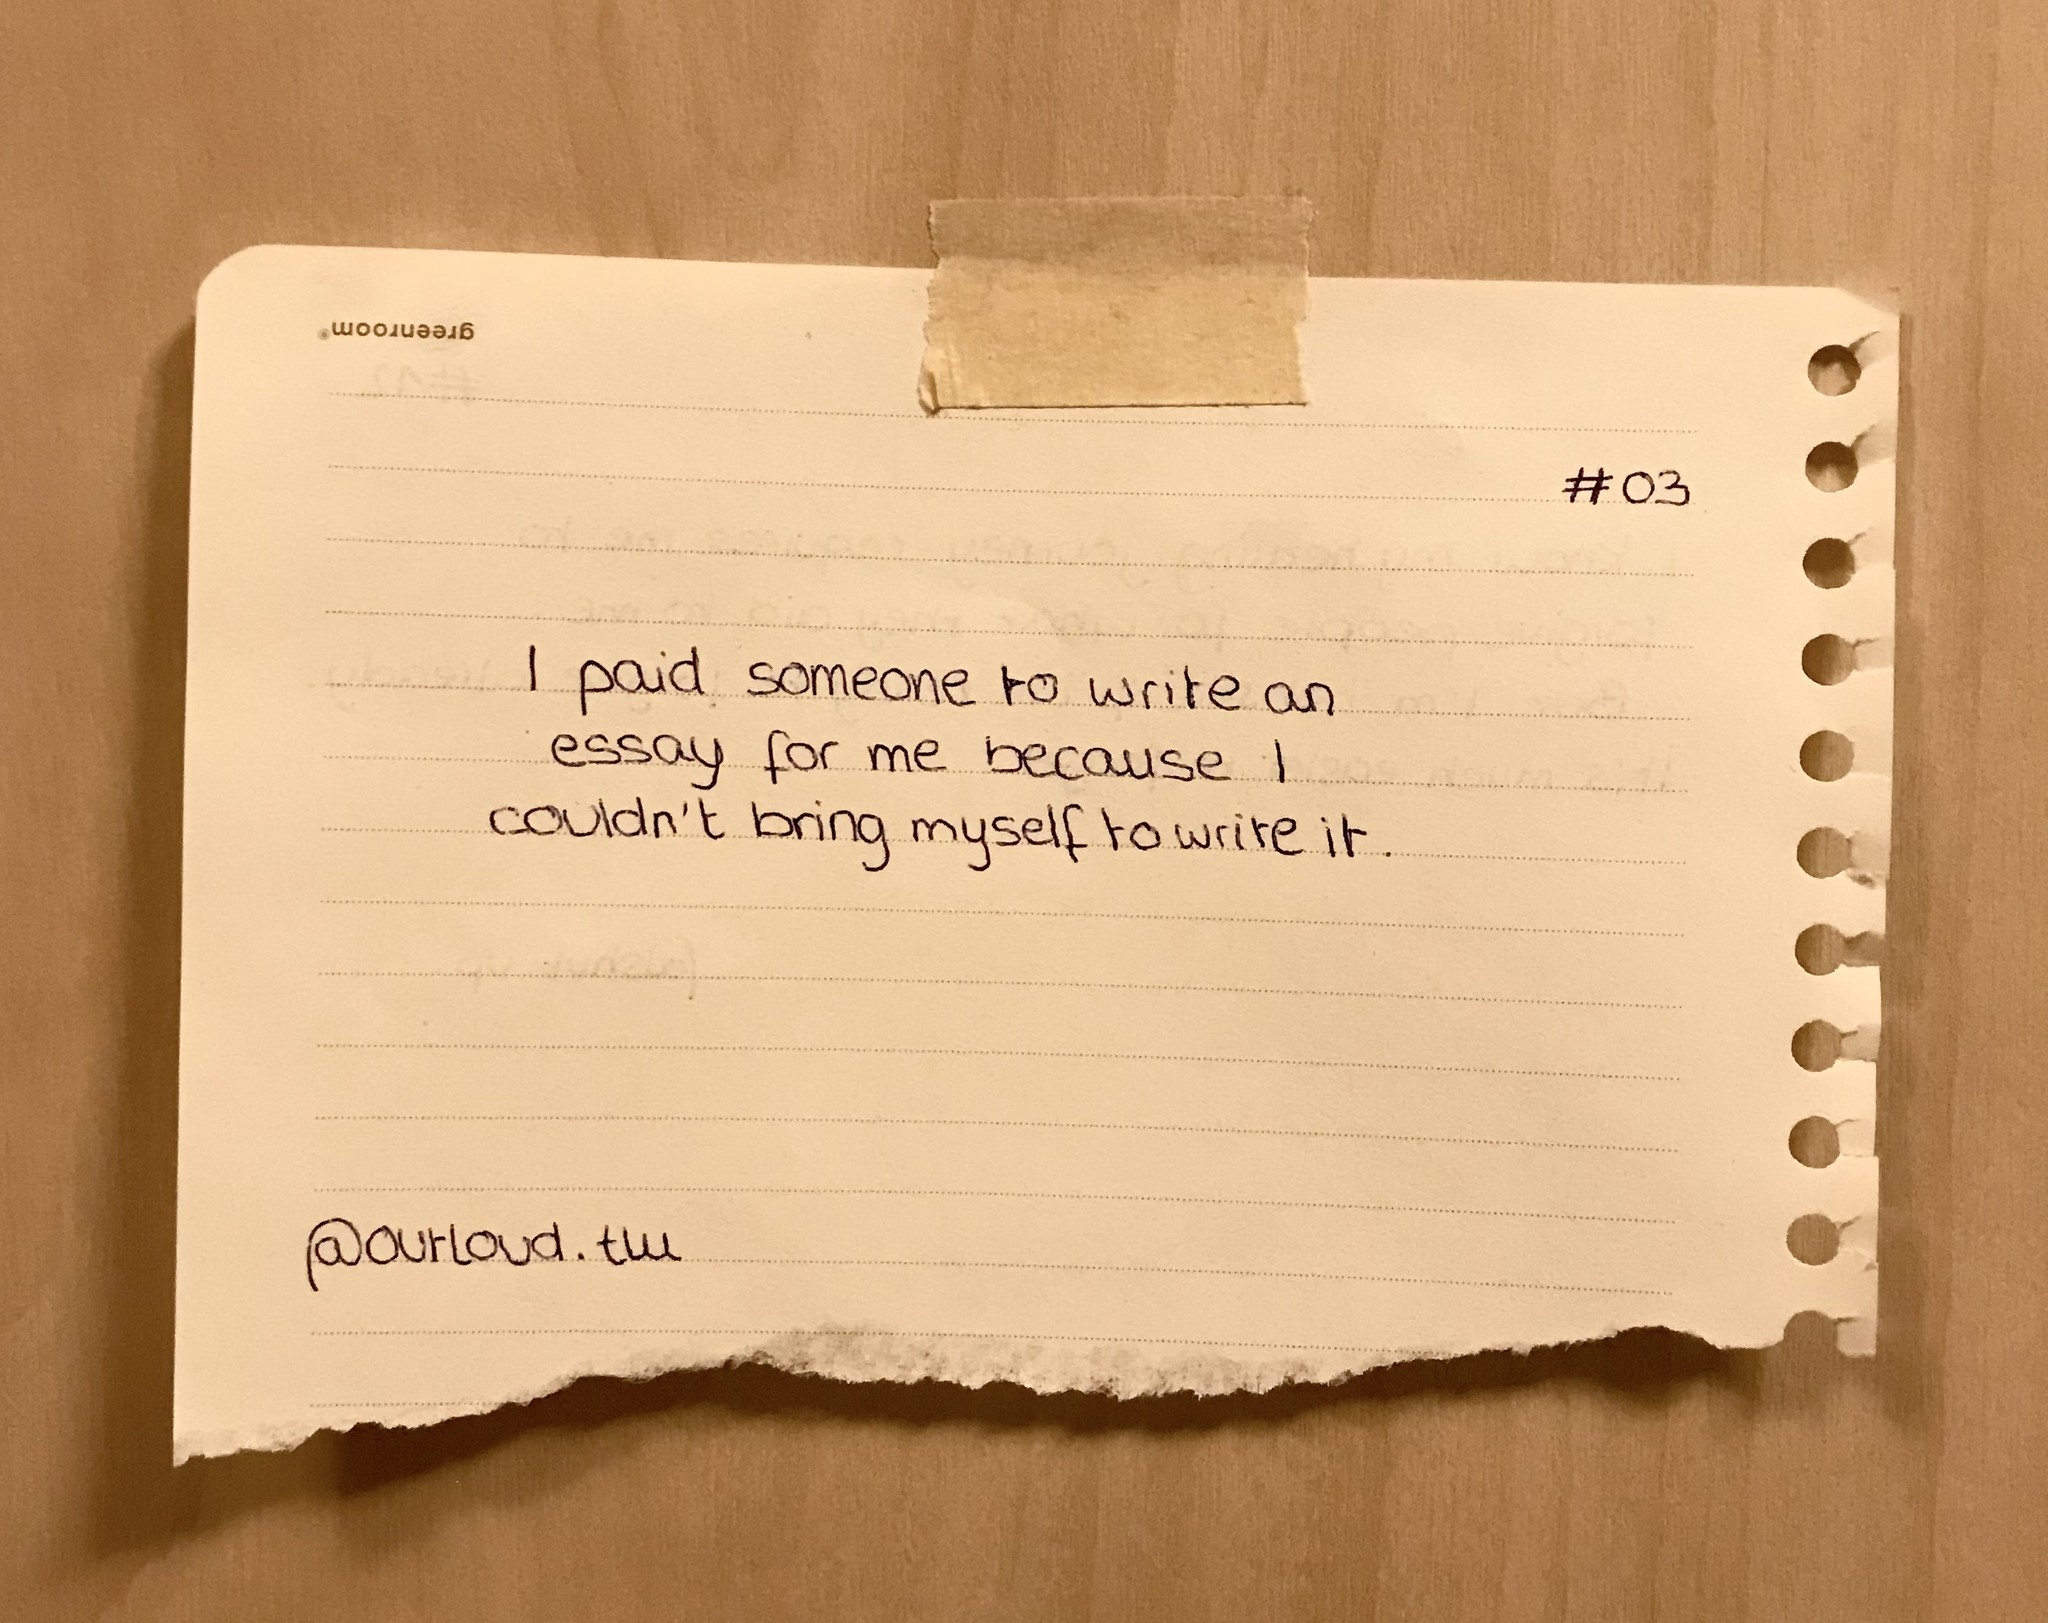 greenroom®
#03
I paid someone to write an
essay for me because I
couldn't bring myself to write it.
@ourloud.tw